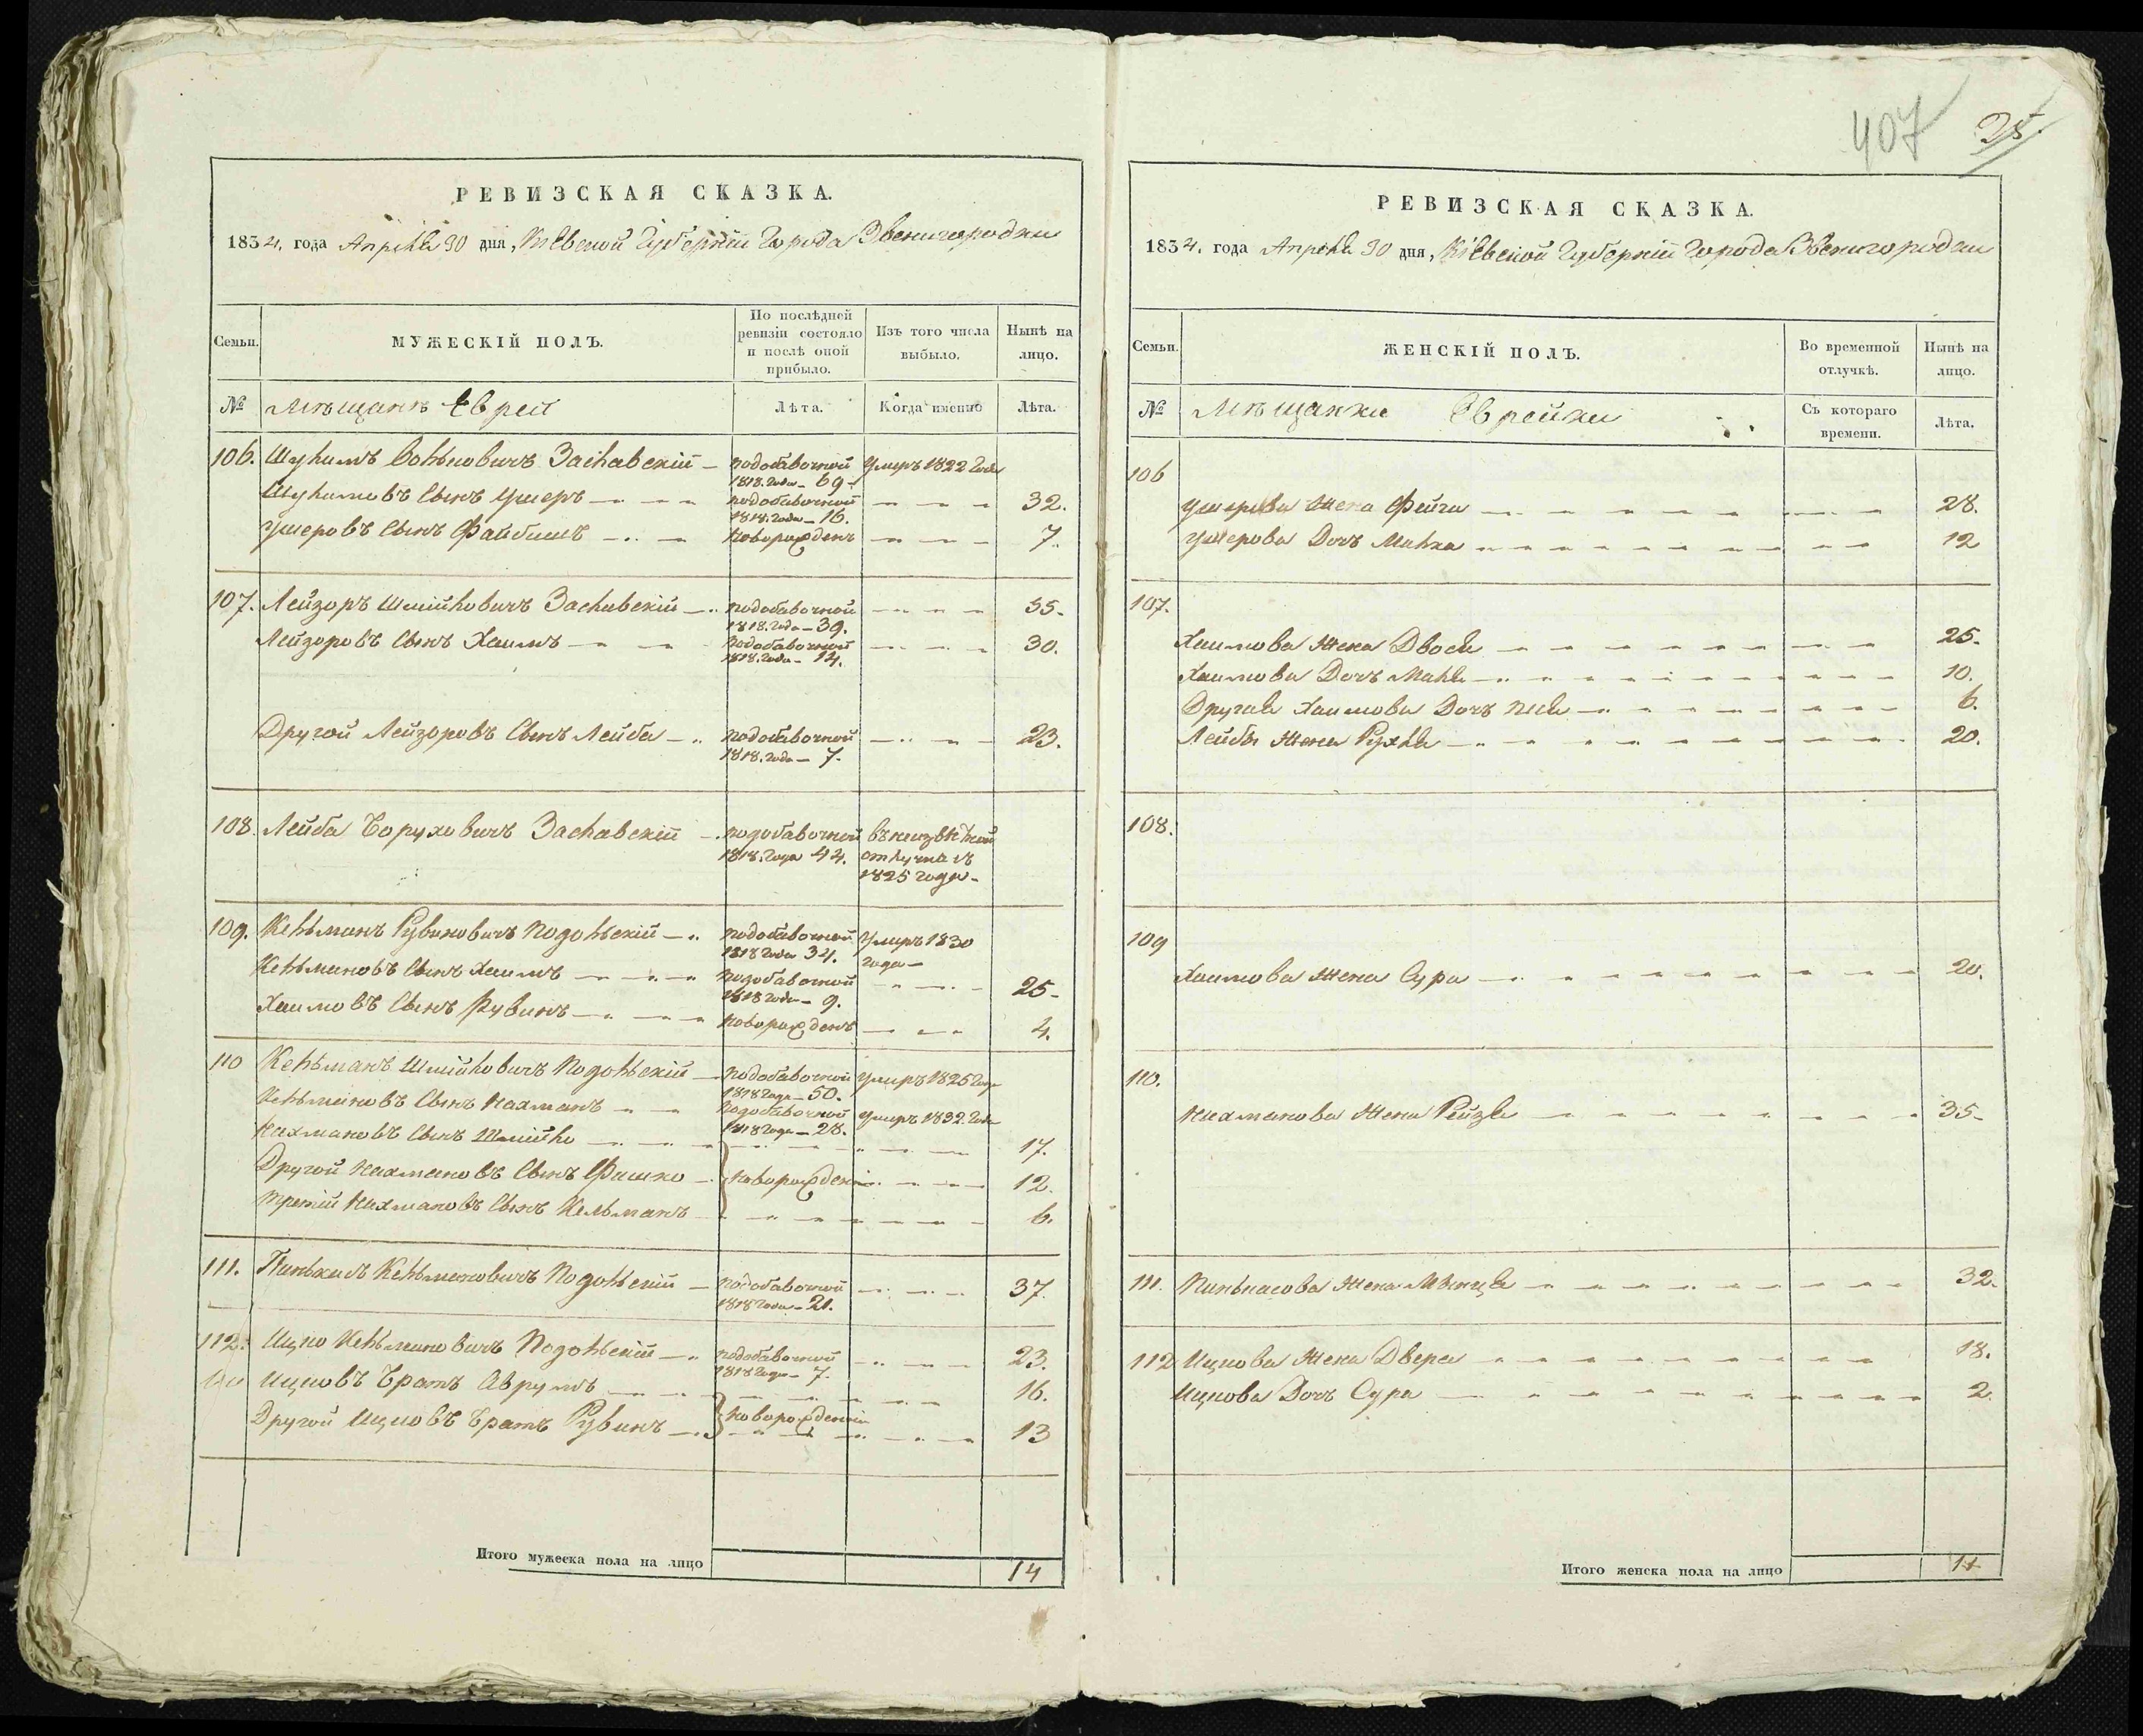 РЕВИЗСКАЯ СКАЗКА.
1834. года Апреля 30 дня, Киевской Губернии Города Звенигородки
Семьи.
МУЖЕСКІЙ ПОЛЪ.
По послѣдней
ревизіи состояло
и послѣ оной
прибыло.
Изъ того числа
выбыло.
Нынѣ на
лицо.
№
Мѣщанѣ Евреи
Лѣта.
Когда именно
Лѣта.
106. Заславскій — подобавочной Умеръ 1822 Года
1818. года — 69 —
сынъ Ушеръ — подобавочной — 32.
1818. года — 16.
Ушеровъ Сынъ Файбишъ — новорожденъ — 7.
107. Лейзоръ Шмійловичъ Заславскій — подобавочной — 55.
1818. года — 39.
Лейзоровъ Сынъ Хаимъ — подобавочной — 30.
1818. года — 14.
Другой Лейзоровъ Сынъ Лейба — подобавочной — 23.
1818. года — 7.
108. Лейба Боруховичъ Заславскій — подобавочной въ неизвѣстной
1818. года 44. отлучкѣ съ
1825 года —
109. Кельманъ Рувиновичъ Подольскій — подобавочной Умеръ 1830
1818 года 34. года —
Кельмановъ Сынъ Хаимъ — подобавочной — 25 —
1818 года — 9.
Хаимовъ Сынъ Рувинъ — новорожденъ — 4.
110 Кельманъ Шмійловичъ Подольскій — подобавочной умеръ 1825 года
1818 года — 50.
Кельмановъ Сынъ Нахманъ — подобавочной умеръ 1832 года
1818 года — 28.
Нахмановъ Сынъ Шмійло — 17.
Другой Нахмановъ Сынъ — новорожденни — 12.
третій Нахмановъ Сынъ Кельманъ — 6.
111. Пинькасъ Кельмановичъ Подольскій — подобавочной — 37.
1818 года — 21.
112. Ицко Кельмановичъ Подольскій — подобавочной — 23.
1818 года — 7.
Ицковъ Братъ Аврумъ — 16.
новорожденни
Другой Ицковъ Братъ Рувинъ — 13
Итого мужеска пола на лицо 14
407 25.
РЕВИЗСКАЯ СКАЗКА.
1834. года Апреля 30 дня, Киевской Губернии Города Звенигородки
Семьи.
ЖЕНСКІЙ ПОЛЪ.
Во временной
отлучкѣ.
Нынѣ на
лицо.
№
Мѣщанки Еврейки
Съ котораго
времени.
Лѣта.
106
Ушерова Жена Фейга — 28.
Ушерова Дочъ Малка — 12
107.
Хаимова Жена Двося — 25 —
Хаимова Дочъ — 10.
Другая Хаимова Дочъ — 6.
Лейбы Жена Рухля — 20.
108.
109
Хаимова Жена Сура — 20.
110.
Нахманова Жена Рейзя — 35 —
111. Пинькасова Жена — 32.
112 Ицкова Жена Двера — 18.
Ицкова Дочъ Сура — 2.
Итого женска пола на лицо 11